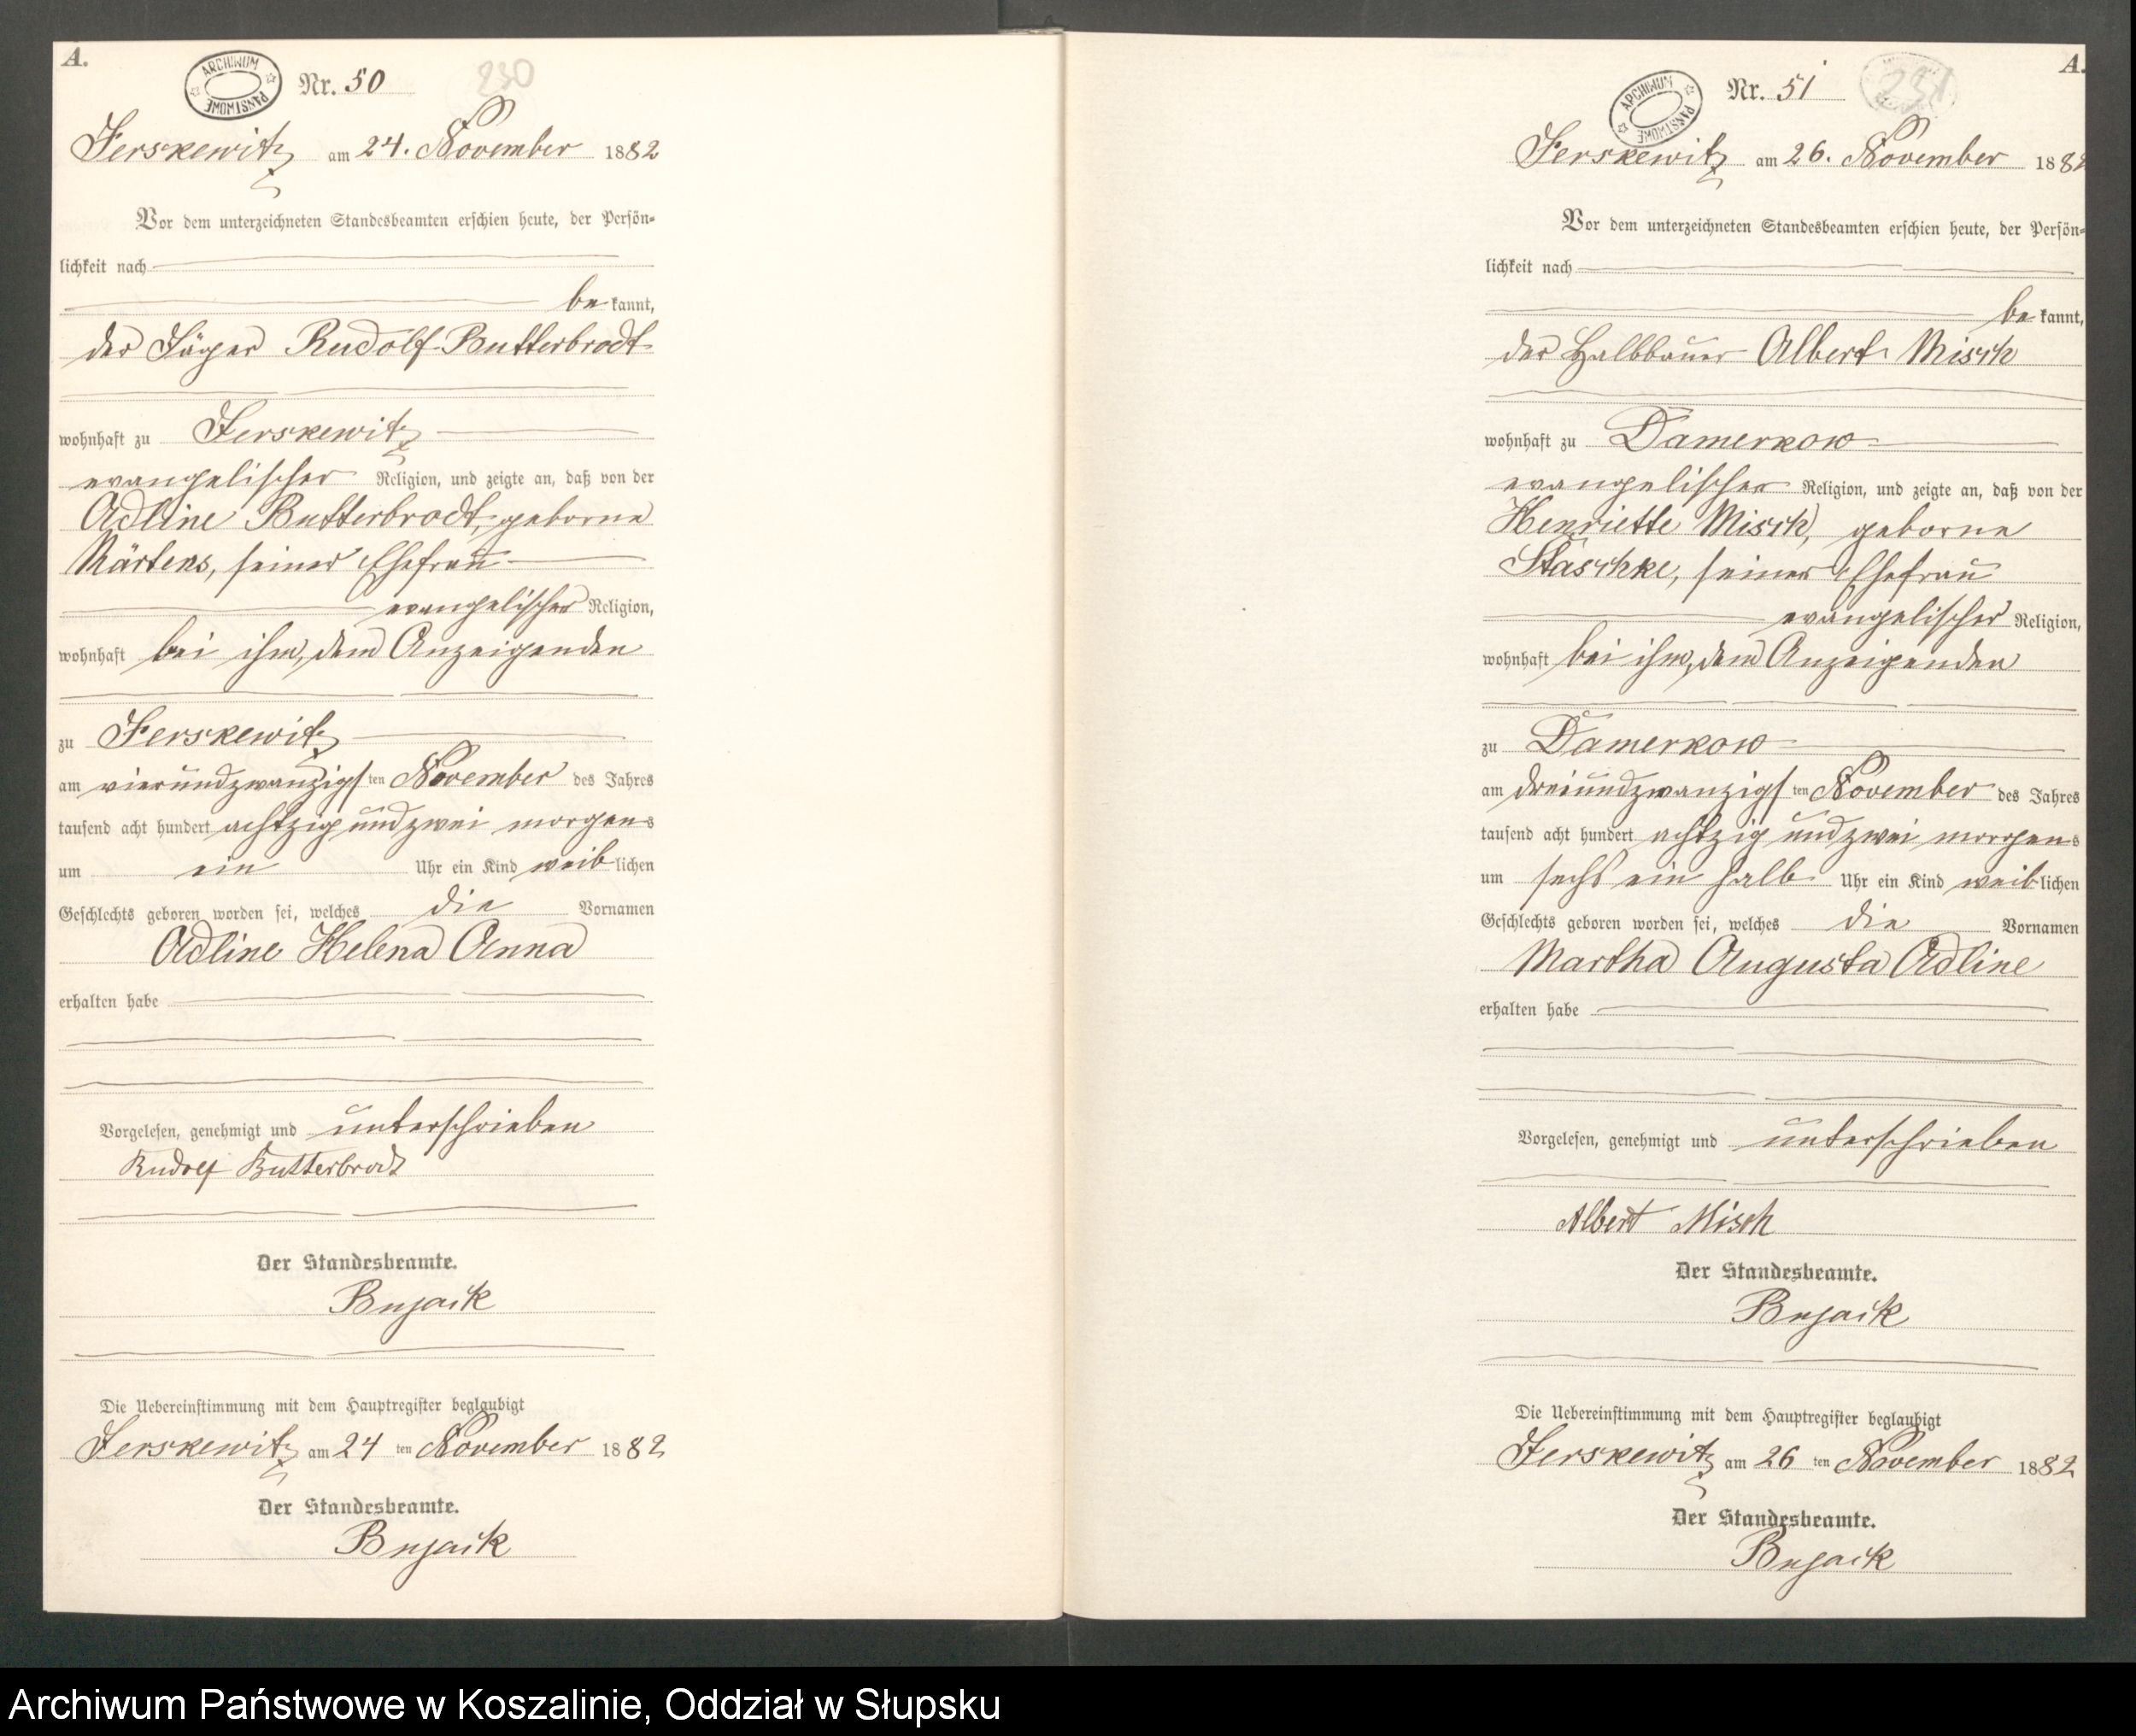 A.
ARCHIWUM PAŃSTWOWE
Nr. 50
230
Jerskewitz am 24. November 1882
Vor dem unterzeichneten Standesbeamten erschien heute, der Persön-
lichkeit nach
bekannt,
der Jäger Rudolf Butterbrodt
wohnhaft zu Jerskewitz
evangelischer Religion, und zeigte an, daß von der
Adline Butterbrodt, geborne
Märtens, seiner Ehefrau
evangelischer Religion,
wohnhaft bei ihm, dem Anzeigenden
zu Jerskewitz
am vierundzwanzigsten November des Jahres
tausend acht hundert achtzig und zwei morgens
um ein Uhr ein Kind weiblichen
Geschlechts geboren worden sei, welches die Vornamen
Adline Helena Anna
erhalten habe
Vorgelesen, genehmigt und unterschrieben
Rudolf Butterbrodt
Der Standesbeamte.
Bujack
Die Uebereinstimmung mit dem Hauptregister beglaubigt
Jerskewitz am 24 ten November 1882
Der Standesbeamte.
Bujack
A.
ARCHIWUM PAŃSTWOWE
Nr. 51
231
Jerskewitz am 26. November 1882
Vor dem unterzeichneten Standesbeamten erschien heute, der Persön-
lichkeit nach
bekannt,
der Halbbauer Albert Misch
wohnhaft zu Damerkow
evangelischer Religion, und zeigte an, daß von der
Henriette Misch, geborne
Staschke, seiner Ehefrau
evangelischer Religion,
wohnhaft bei ihm, dem Anzeigenden
zu Damerkow
am dreiundzwanzigsten November des Jahres
tausend acht hundert achtzig und zwei morgens
um sechs ein halb Uhr ein Kind weiblichen
Geschlechts geboren worden sei, welches die Vornamen
Martha Augusta Adline
erhalten habe
Vorgelesen, genehmigt und unterschrieben
Albert Misch
Der Standesbeamte.
Bujack
Die Uebereinstimmung mit dem Hauptregister beglaubigt
Jerskewitz am 26 ten November 1882
Der Standesbeamte.
Bujack
Archiwum Państwowe w Koszalinie, Oddział w Słupsku